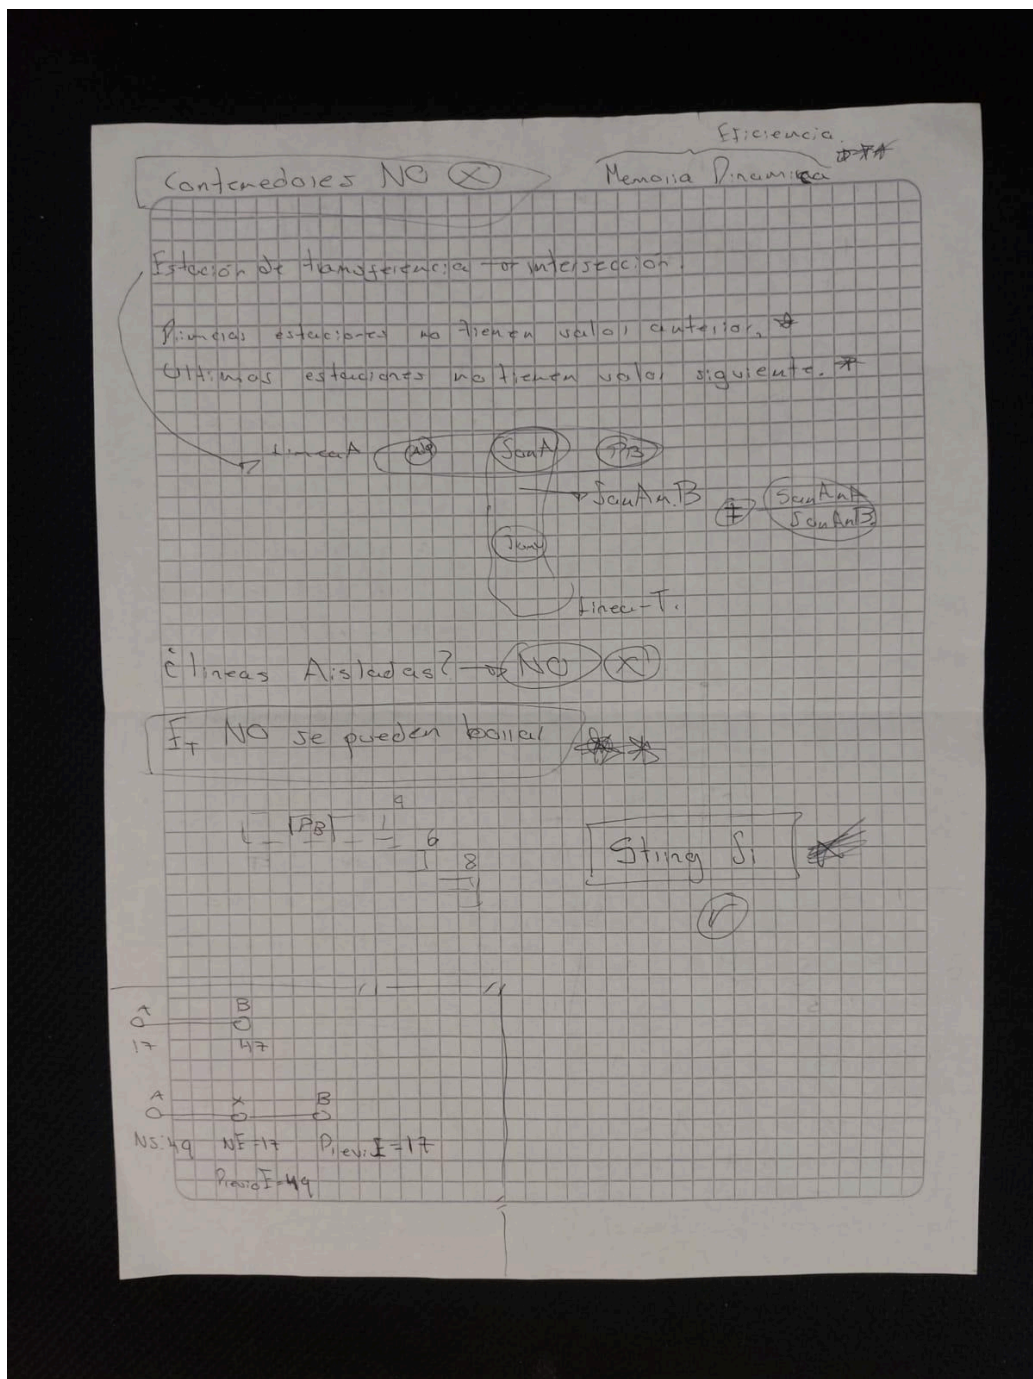 Eficiencia
Contenedores NO X
Memoria Dinamica
Estación de transferencia → intersección.
Primeras estaciones no tienen valor anterior. *
Ultimas estaciones no tienen valor siguiente. *
Linea A
SanA
PB
SanAn.B
≠
SanAnA
SanAnB
Linea-T.
¿Lineas Aisladas? → NO X
ET NO se pueden borrar
PB
6
8
String Si
A B
17 47
A X B
NS:49 NE=17 Previ.E=17
PrevioE=49